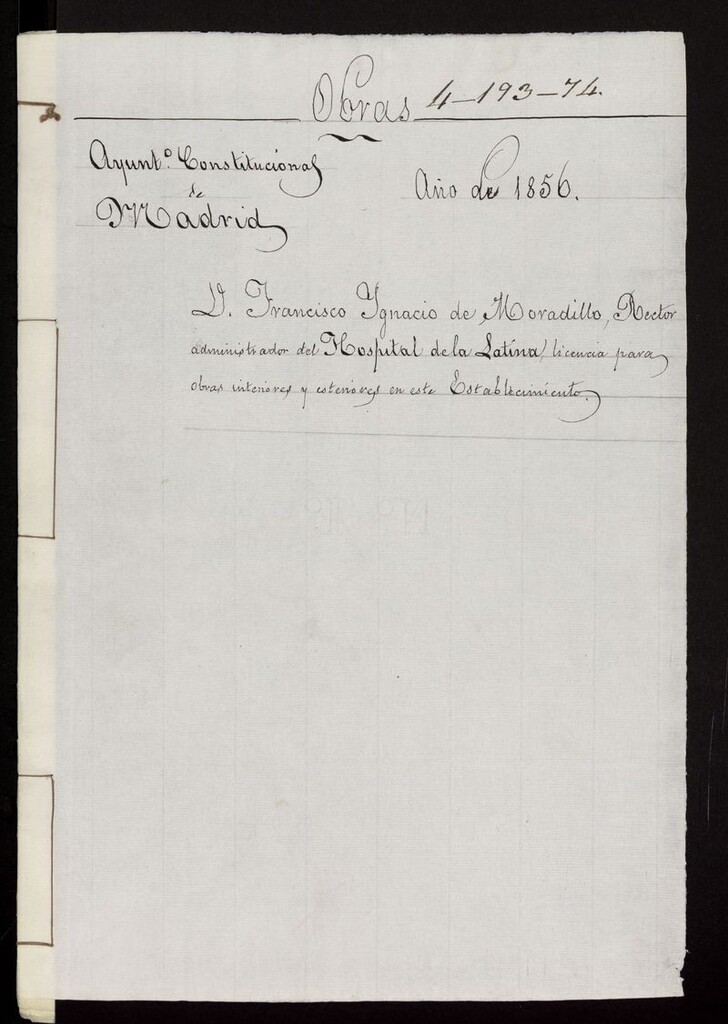 Obras 4-193-74.
Ayunt.º Constitucional
de
Madrid
Año de 1856.
D. Francisco Ygnacio de Moradillo, Rector
administrador del Hospital de la Latina, licencia para
obras interiores y esteriores en este Establecimiento.